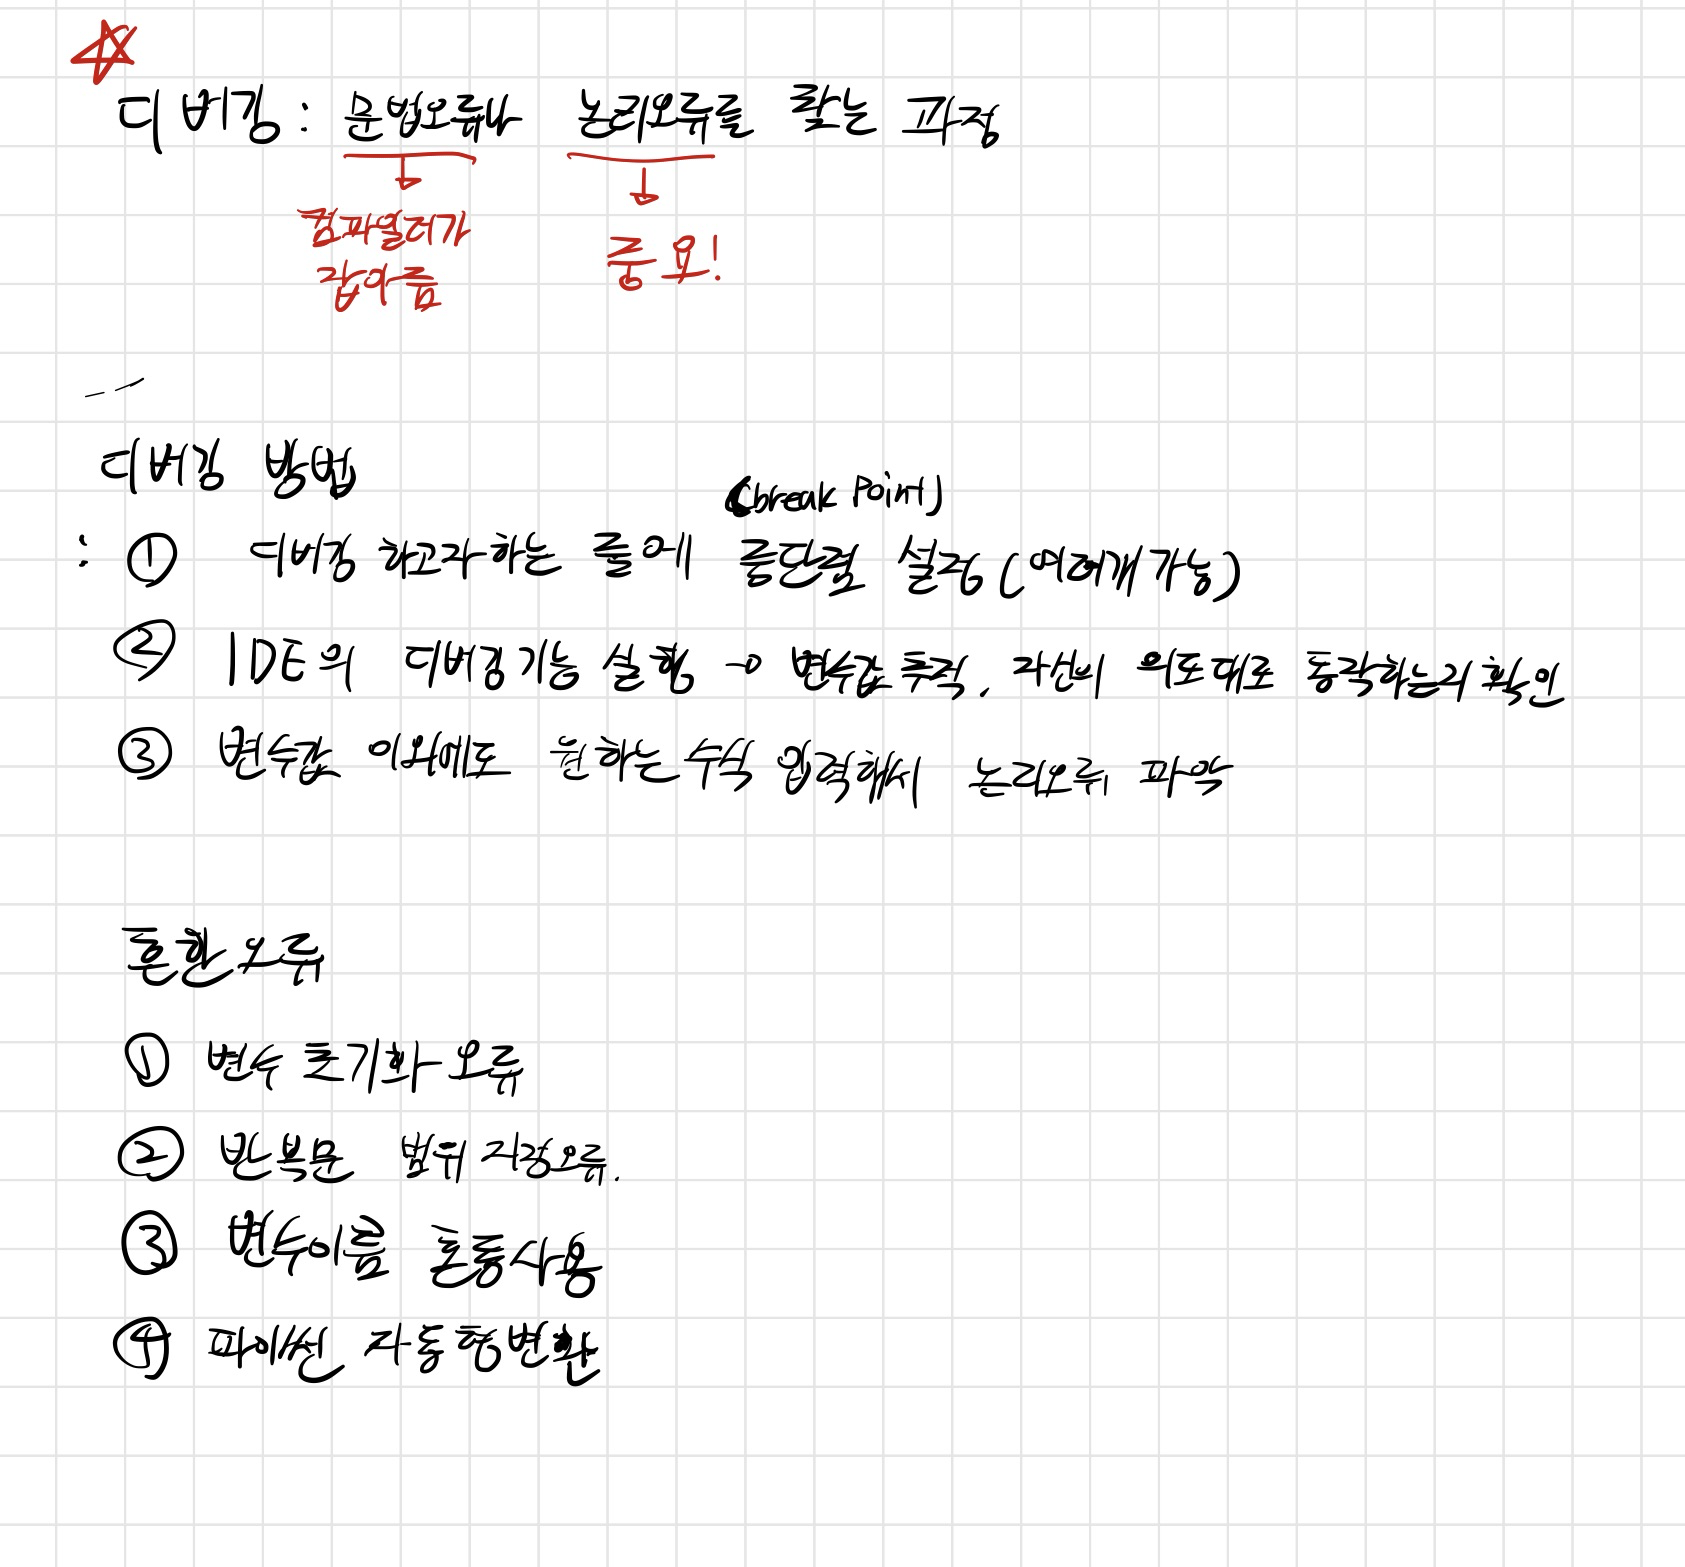 디버깅 : 문법오류나 논리오류를 찾는 과정
컴파일러가 중요!
잡아줌
디버깅 방법
(break Point)
: ① 디버깅 하고자 하는 줄에 중단점 설정 (여러개 가능)
② IDE의 디버깅 기능 실행 → 변수값 추적, 자신의 의도대로 동작하는지 확인
③ 변수값 이외에도 원하는 수식 입력해서 논리오류 파악
흔한 오류
① 변수 초기화 오류
② 반복문 범위 지정오류.
③ 변수이름 혼동사용
④ 파이썬 자동형변환